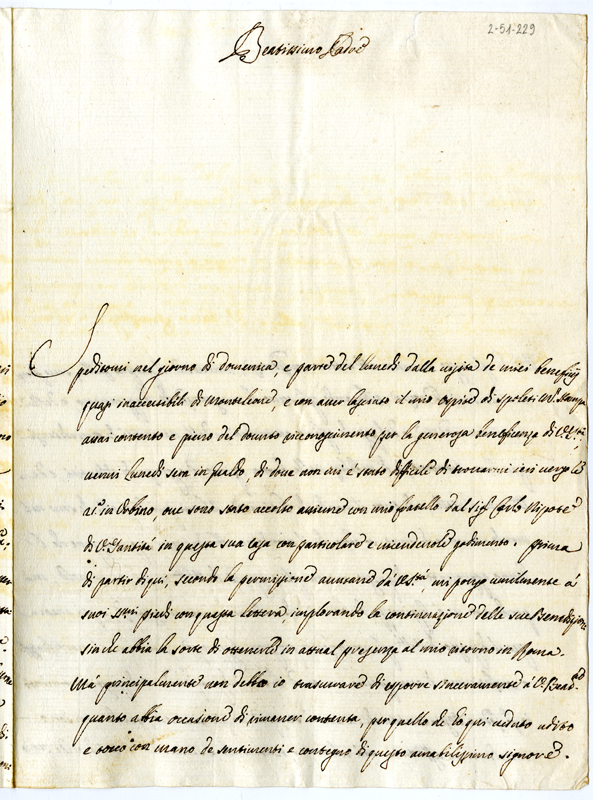 2-51-229
Beatissimo Padre
Speditomi nel giorno di domenica, e parte del lunedi dalla visita de miei beneficij
quasi inaccessibili di Monteleone, e con aver lasciato il mio ospite di Spoleti
assai contento e pieno del dovuto riconoscimento per la generosa beneficenza di V. Stà,
venni lunedi sera in Gualdo, di dove non mi è stato difficile di trovarmi ieri verso le
in Urbino, ove sono stato accolto assieme con mio fratello dal Sigr Carlo Nipote
di V. Santità in questa sua casa con particolare e vicendevole godimento. Prima
di partir di qui, secondo la permissione avutane da Vs. Stà, mi pongo umilmente a
suoi Ssmi piedi con questa lettera, implorando la continuazione delle sue Benedizioni
sin che abbia la sorte di ottenerle in attual presenza al mio ritorno in Roma.
Ma principalmente non debbo io trascurare di esporre sinceramente à V. Beatne
quanto abbia occasione di rimaner contenta, per quello che hò qui veduto udito
e tocco con mano de sentimenti e contegno di questo amabilissimo signore.